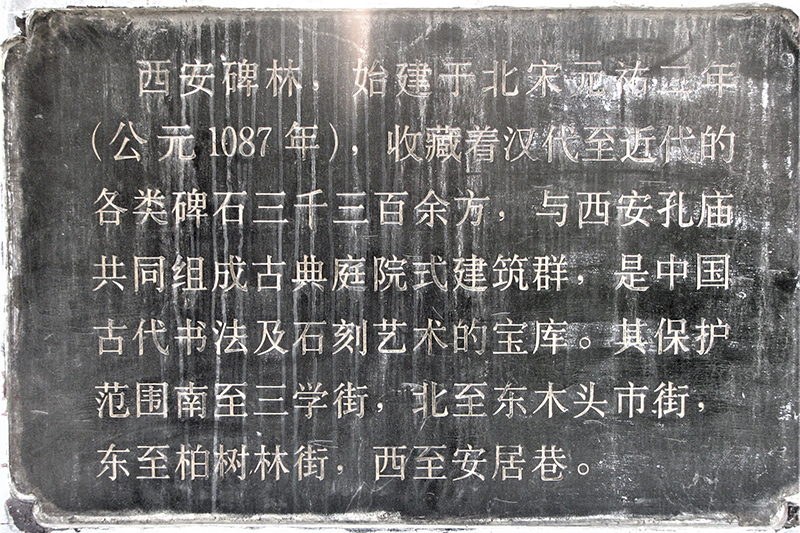 西安碑林，始建于北宋元祐二年
（公元1087年），收藏着汉代至近代的
各类碑石三千三百余方，与西安孔庙
共同组成古典庭院式建筑群，是中国
古代书法及石刻艺术的宝库。其保护
范围南至三学街，北至东木头市街，
东至柏树林街，西至安居巷。